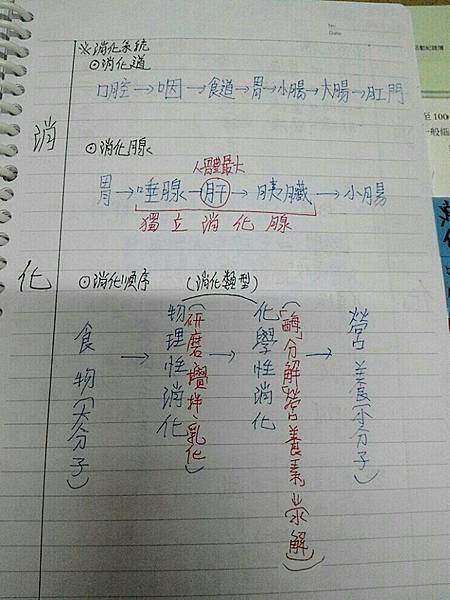 No:
Date:
※消化系統
⊙消化道
口腔→咽→食道→胃→小腸→大腸→肛門
消化
⊙消化腺
人體最大
胃→唾腺→肝→胰臟→小腸
獨立消化腺
⊙消化順序
(消化類型)
食物(大分子)
→
物理性消化
(研磨、攪拌、乳化)
→
化學性消化
(酶分解營養素→水解)
→
營養(小分子)
至100
一般